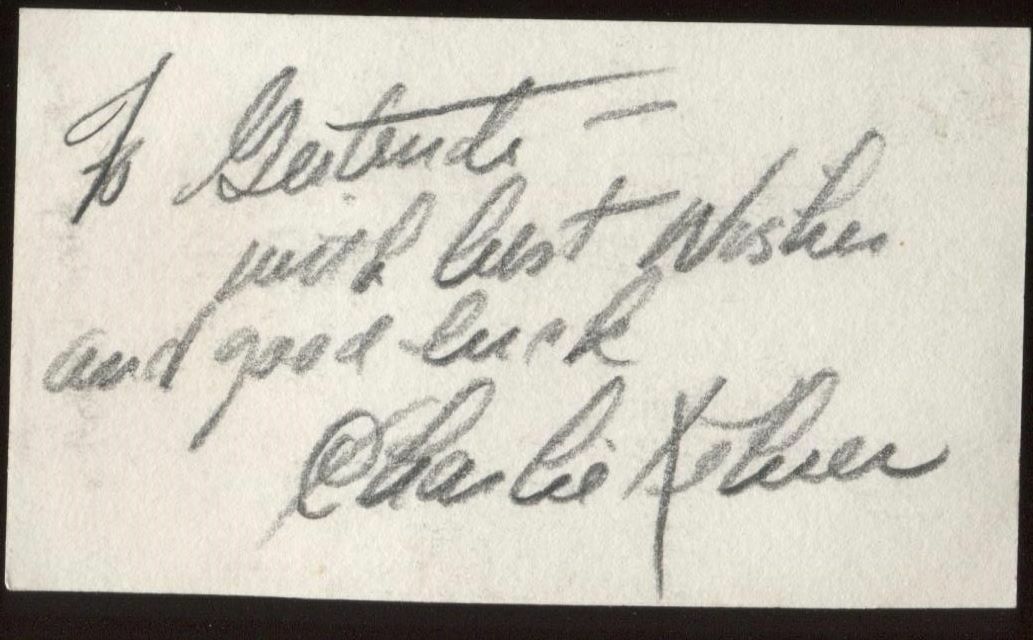 To Gertrude —
with best Wishes
and good luck
Charlie